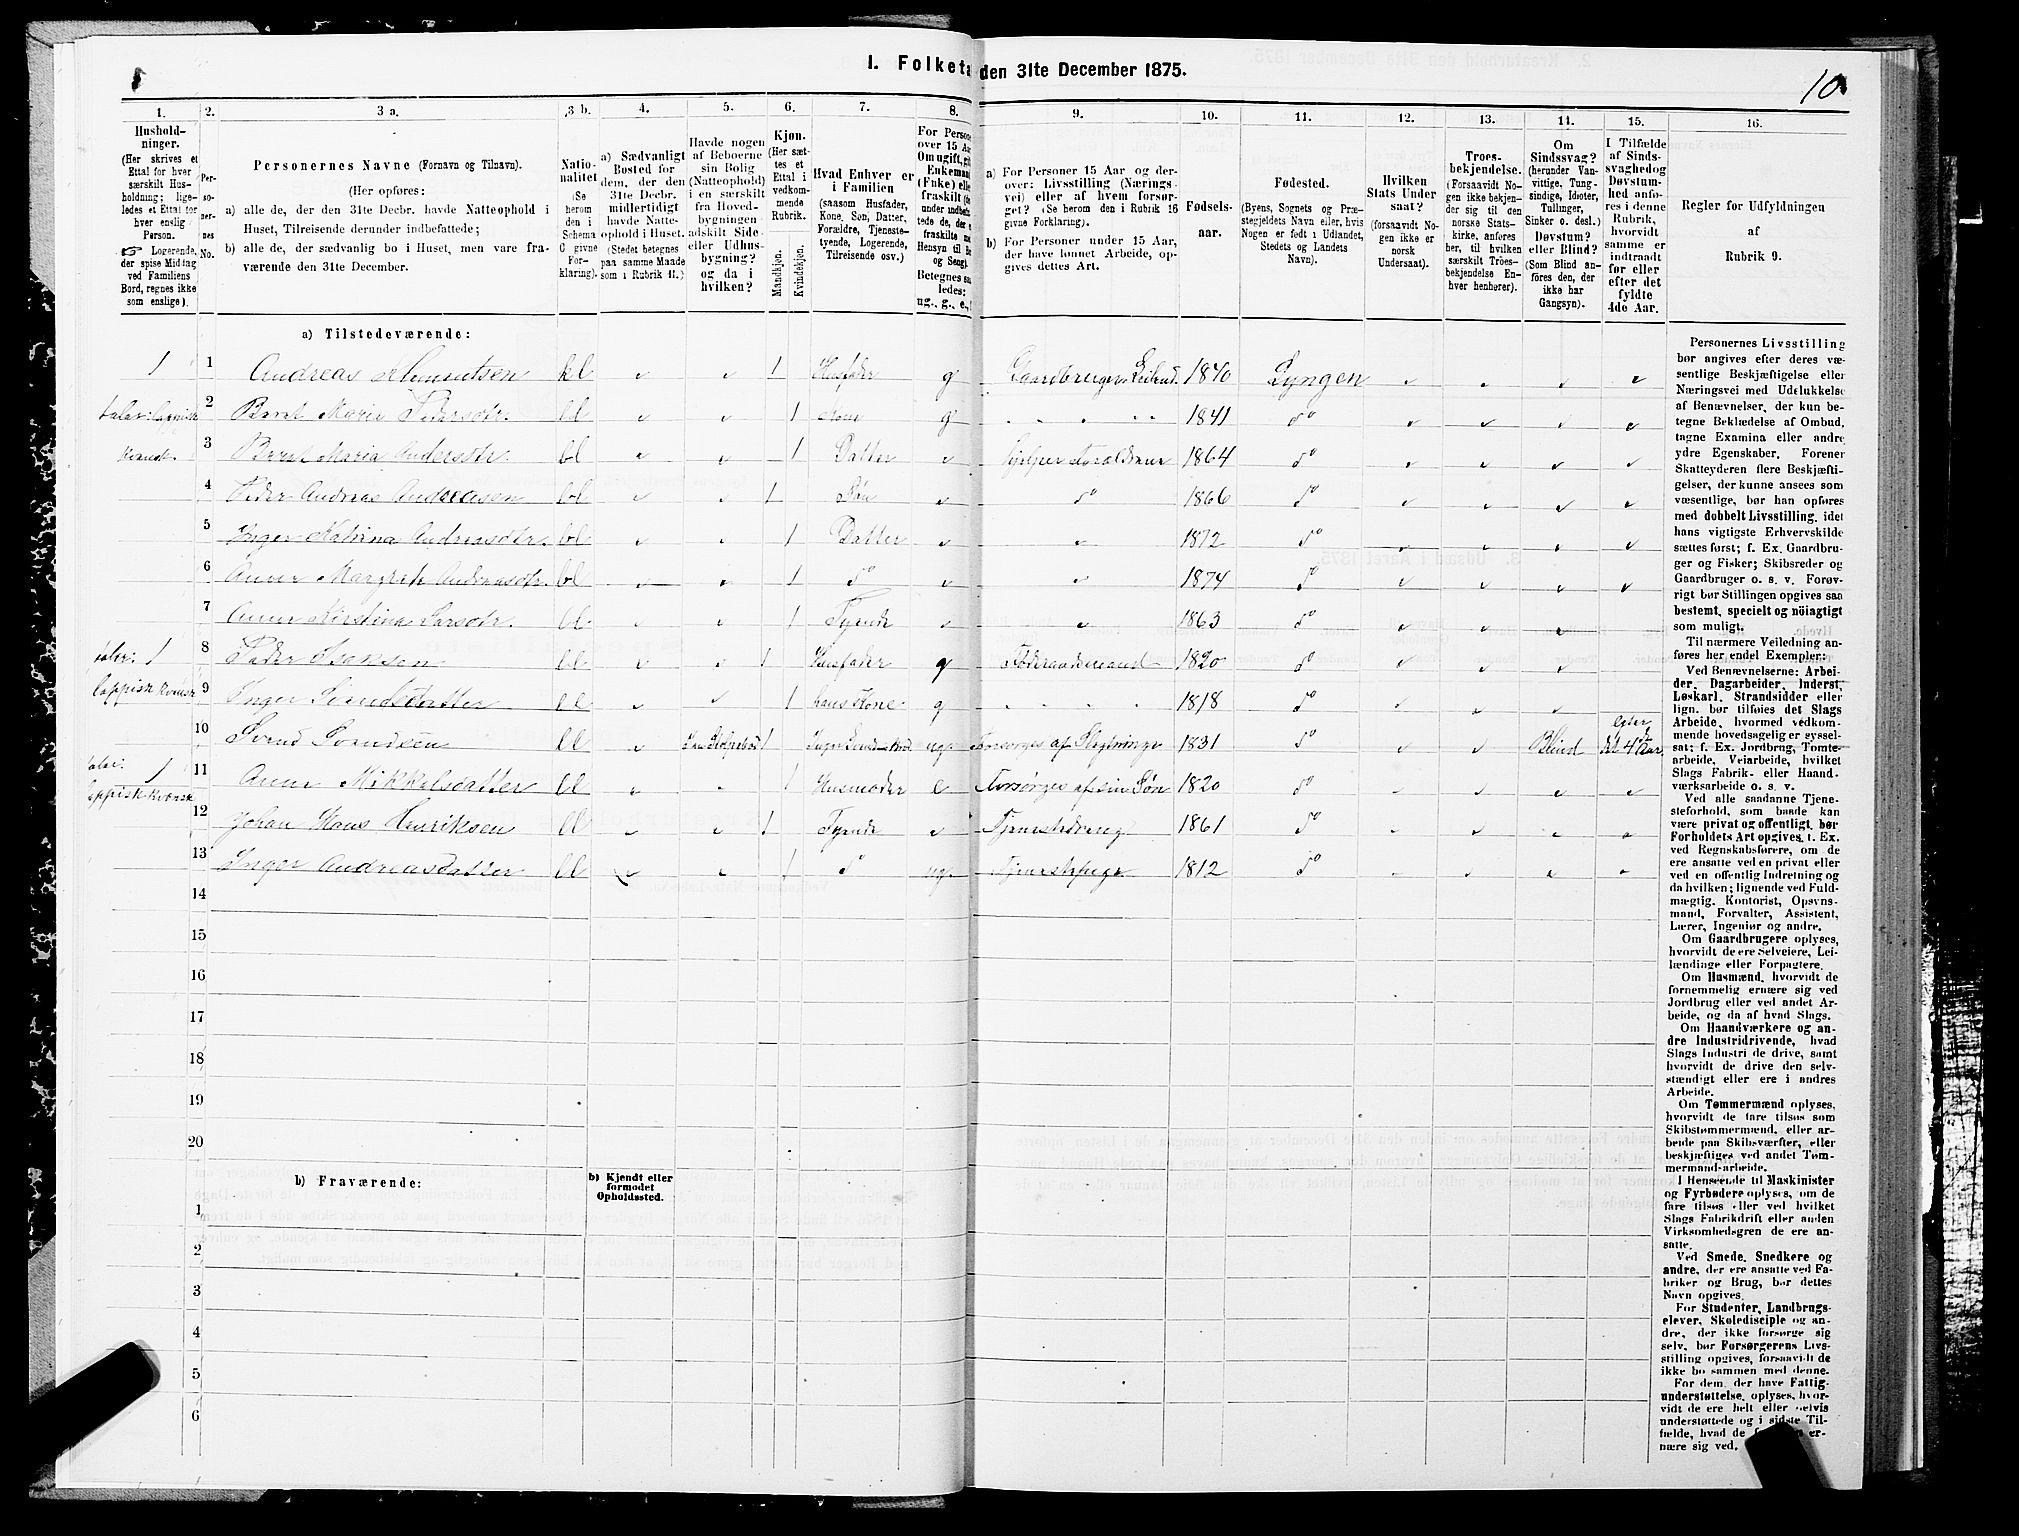 I. Folketa den 31te December 1875.
10
1.
Hushold-
ninger.
(Her skrives et
Ettal for hver
særskilt Hus-
holdning; lige-
ledes et Ettal for
hver enslig
Person.
☞ Logerende,
der spise Middag
ved Familiens
Bord, regnes ikke
som enslige).
2.
Per-
so-
ner-
nes
No.
3 a.
Personernes Navne (Fornavn og Tilnavn).
(Her opføres:
a) alle de, der den 31te Decbr. havde Natteophold i
Huset, Tilreisende derunder indbefattede;
b) alle de, der sædvanlig bo i Huset, men vare fra-
værende den 31te December.
3 b.
Natio-
nalitet
(Se
herom
den i
Schema
C givne
For-
klaring).
4.
a) Sædvanligt
Bosted for
dem, der den
31te Decbr.
midlertidigt
havde Natte-
ophold i Huset.
(Stedet betegnes
paa samme Maade
som i Rubrik 11.)
5.
Havde nogen
af Beboerne
sin Bolig
(Natteophold)
i en særskilt
fra Hoved-
bygningen
adskilt Side-
eller Udhus-
bygning?
og da i
hvilken?
6.
Kjøn.
(Her sæt-
tes et
Ettal i
vedkom-
mende
Rubrik.
Mandkjøn.
Kvindekjøn.
7.
Hvad Enhver er
i Familien
(saasom Husfader,
Kone, Søn, Datter,
Forældre, Tjeneste-
tyende, Logerende,
Tilreisende osv.)
8.
For Persone
over 15 Aa
Om ugift, gif
Enkemand
(Enke) elle
fraskilt
ug., g., e.,
9.
a) For Personer 15 Aar og der-
over: Livsstilling (Nærings-
vei) eller af hvem forsør-
get? (Se herom den i Rubrik 16
givne Forklaring).
b) For Personer under 15 Aar,
der have lønnet Arbeide, op-
gives dettes Art.
10.
Fødsels-
aar.
11.
Fødested.
(Byens, Sognets og Præ-
stegjeldets Navn eller, hvis
Nogen er født i Udlandet,
Stedets og Landets
Navn).
12.
Hvilken
Stats Under
saat?
(forsaavidt No-
gen ikke er
norsk
Undersaat).
13.
Troes-
bekjendelse.
(Forsaavidt No-
gen ikke bekjen-
der sig til den
norske Stats-
kirke, anføres
her, til hvilken
særskilt Troes-
bekjendelse En-
hver henhører).
14.
Om
Sindssvag?
(herunder Van-
vittige, Tung-
sindige, Idioter,
Tullinger,
Sinker o. desl.)
Døvstum?
eller Blind?
(Som Blind an-
føres den, der
ikke har
Gangsyn).
15.
I Tilfælde
af Sinds-
svaghed og
Døvstum-
hed anfø-
res i denne
Rubrik,
hvorvidt
samme er
indtraadt
før eller
efter det
fyldte
4de Aar.
16.
Regler for Udfyldningen
af
Rubrik 9.
a) Tilstedeværende:
1 1 Andreas Klemmetsen kl 1 Husfader g Gaardbruger Leilend. 1840 Lyngen
taler: lappisk 2 Beret Marie Pedersdtr. ll 1 Kone g 1841 do
kvænsk. 3 Beret Maria Andersdtr bl 1 Datter hjelper Forældrene 1864 do
4 Peder Andreas Andreasen bl 1 Søn do 1866 do
5 Inger Katrina Andreasdtr. bl 1 Datter 1872 do
6 Anne Margreth Andreasdtr. bl 1 do 1874 do
7 Anne Kirstina Larsdtr. bl. 1 Tyende 1863 do
taler: 1 8 Peder Isaksen ll 1 Husfader g Føderaadsmand 1820 do
lappisk kvænsk 9 Inger Svendsdatter ll 1 hans Kone g 1818 do
10 Svend Svendsen ll 1 ug. Forsørges af Slegtninge 1831 do Blind efter det 4de Aar
taler: 1 11 Anne Mikkelsdatter ll 1 Husmoder e Forsørges af sin Søn 1820 do
lappisk kvænsk 12 Johan Hans Henriksen ll 1 Tyende Tjenestedreng 1861 do
13 Inger Andreasdatter ll 1 do ug. Tjenestepige 1812 do
14
15
16
17
18
19
20
b) Fraværende:
b) Kjendt eller
formodet
Opholdssted.
1
2
3
4
5
6
Personernes Livsstilling
bør angives efter deres væ-
sentlige Beskjæftigelse eller
Næringsvei med Udelukkelse
af Benævnelser, der kun be-
tegne Beklædelse af Ombud,
tagne Examina eller andre
ydre Egenskaber. Forener
Skatteyderen flere Beskjæfti-
gelser, der kunne ansees som
væsentlige, bør han opføres
med dobbelt Livsstilling, idet
hans vigtigste Erhvervskilde
sættes først; f. Ex. Gaardbru-
ger og Fisker; Skibsreder og
Gaardbruger o. s. v. Forøv-
rigt bør Stillingen opgives saa
bestemt, specielt og nöiagtigt
som muligt.
Til nærmere Veiledning an-
føres her endel Exempler:
Ved Benævnelserne: Arbei-
der, Dagarbeider, Inderst,
Løskarl, Strandsidder eller
lign. bør tilføies det Slags
Arbeide, hvormed vedkom-
mende hovedsagelig er syssel-
sat; f. Ex. Jordbrug, Tomte-
arbeide, Veiarbeide, hvilket
Slags Fabrik- eller Haand-
værksarbeide o. s. v.
Ved alle saadanne Tjene-
steforhold, som baade kan
være privat og offentligt, bør
Forholdets Art opgives, f. Ex.
ved Regnskabsførere, om de
ere ansatte ved en privat eller
ved en offentlig Indretning og
da hvilken; lignende ved Fuld-
mægtig, Kontorist, Opsyns-
mand, Forvalter, Assistent,
Lærer, Ingeniør og andre.
Om Gaardbrugere oplyses,
hvorvidt de ere Selveiere, Lei-
lændinge eller Forpagtere.
Om Husmænd, hvorvidt de
fornemmelig ernære sig ved
Jordbrug eller ved andet Ar-
beide, og da af hvad Slags.
Om Haandværkere og an-
dre Industridrivende, hvad
Slags Industri de drive, samt
hvorvidt de drive den selv-
stændigt eller ere i andres
Arbeide.
Om Tømmermænd oplyses,
hvorvidt de fare tilsøs som
Skibstømmermænd, eller ar-
beide paa Skibsværfter, eller
beskjæftiges ved andet Tøm-
mermand-arbeide.
I Henseende til Maskinister
og Fyrbødere oplyses, om de
fare tilsøs eller ved hvilket
Slags Fabrikdrift eller anden
Virksomhedsgren de ere an-
satte.
Ved Smede, Snedkere og
andre, der ere ansatte ved Fa-
briker og Brug, bør dettes
Navn opgives.
For Studenter, Landbrugs-
elever, Skoledisciple og an-
dre, der ikke forsørge sig
selv, bør Forsørgerens Livs-
stilling opgives, forsaavidt de
ikke bo sammen med denne.
For dem, der have Fattig-
understøttelse, oplyses, hvor-
vidt de ere helt eller delvis
understøttede og i sidste Til-
fælde, hvad de er-
nære sig ved.